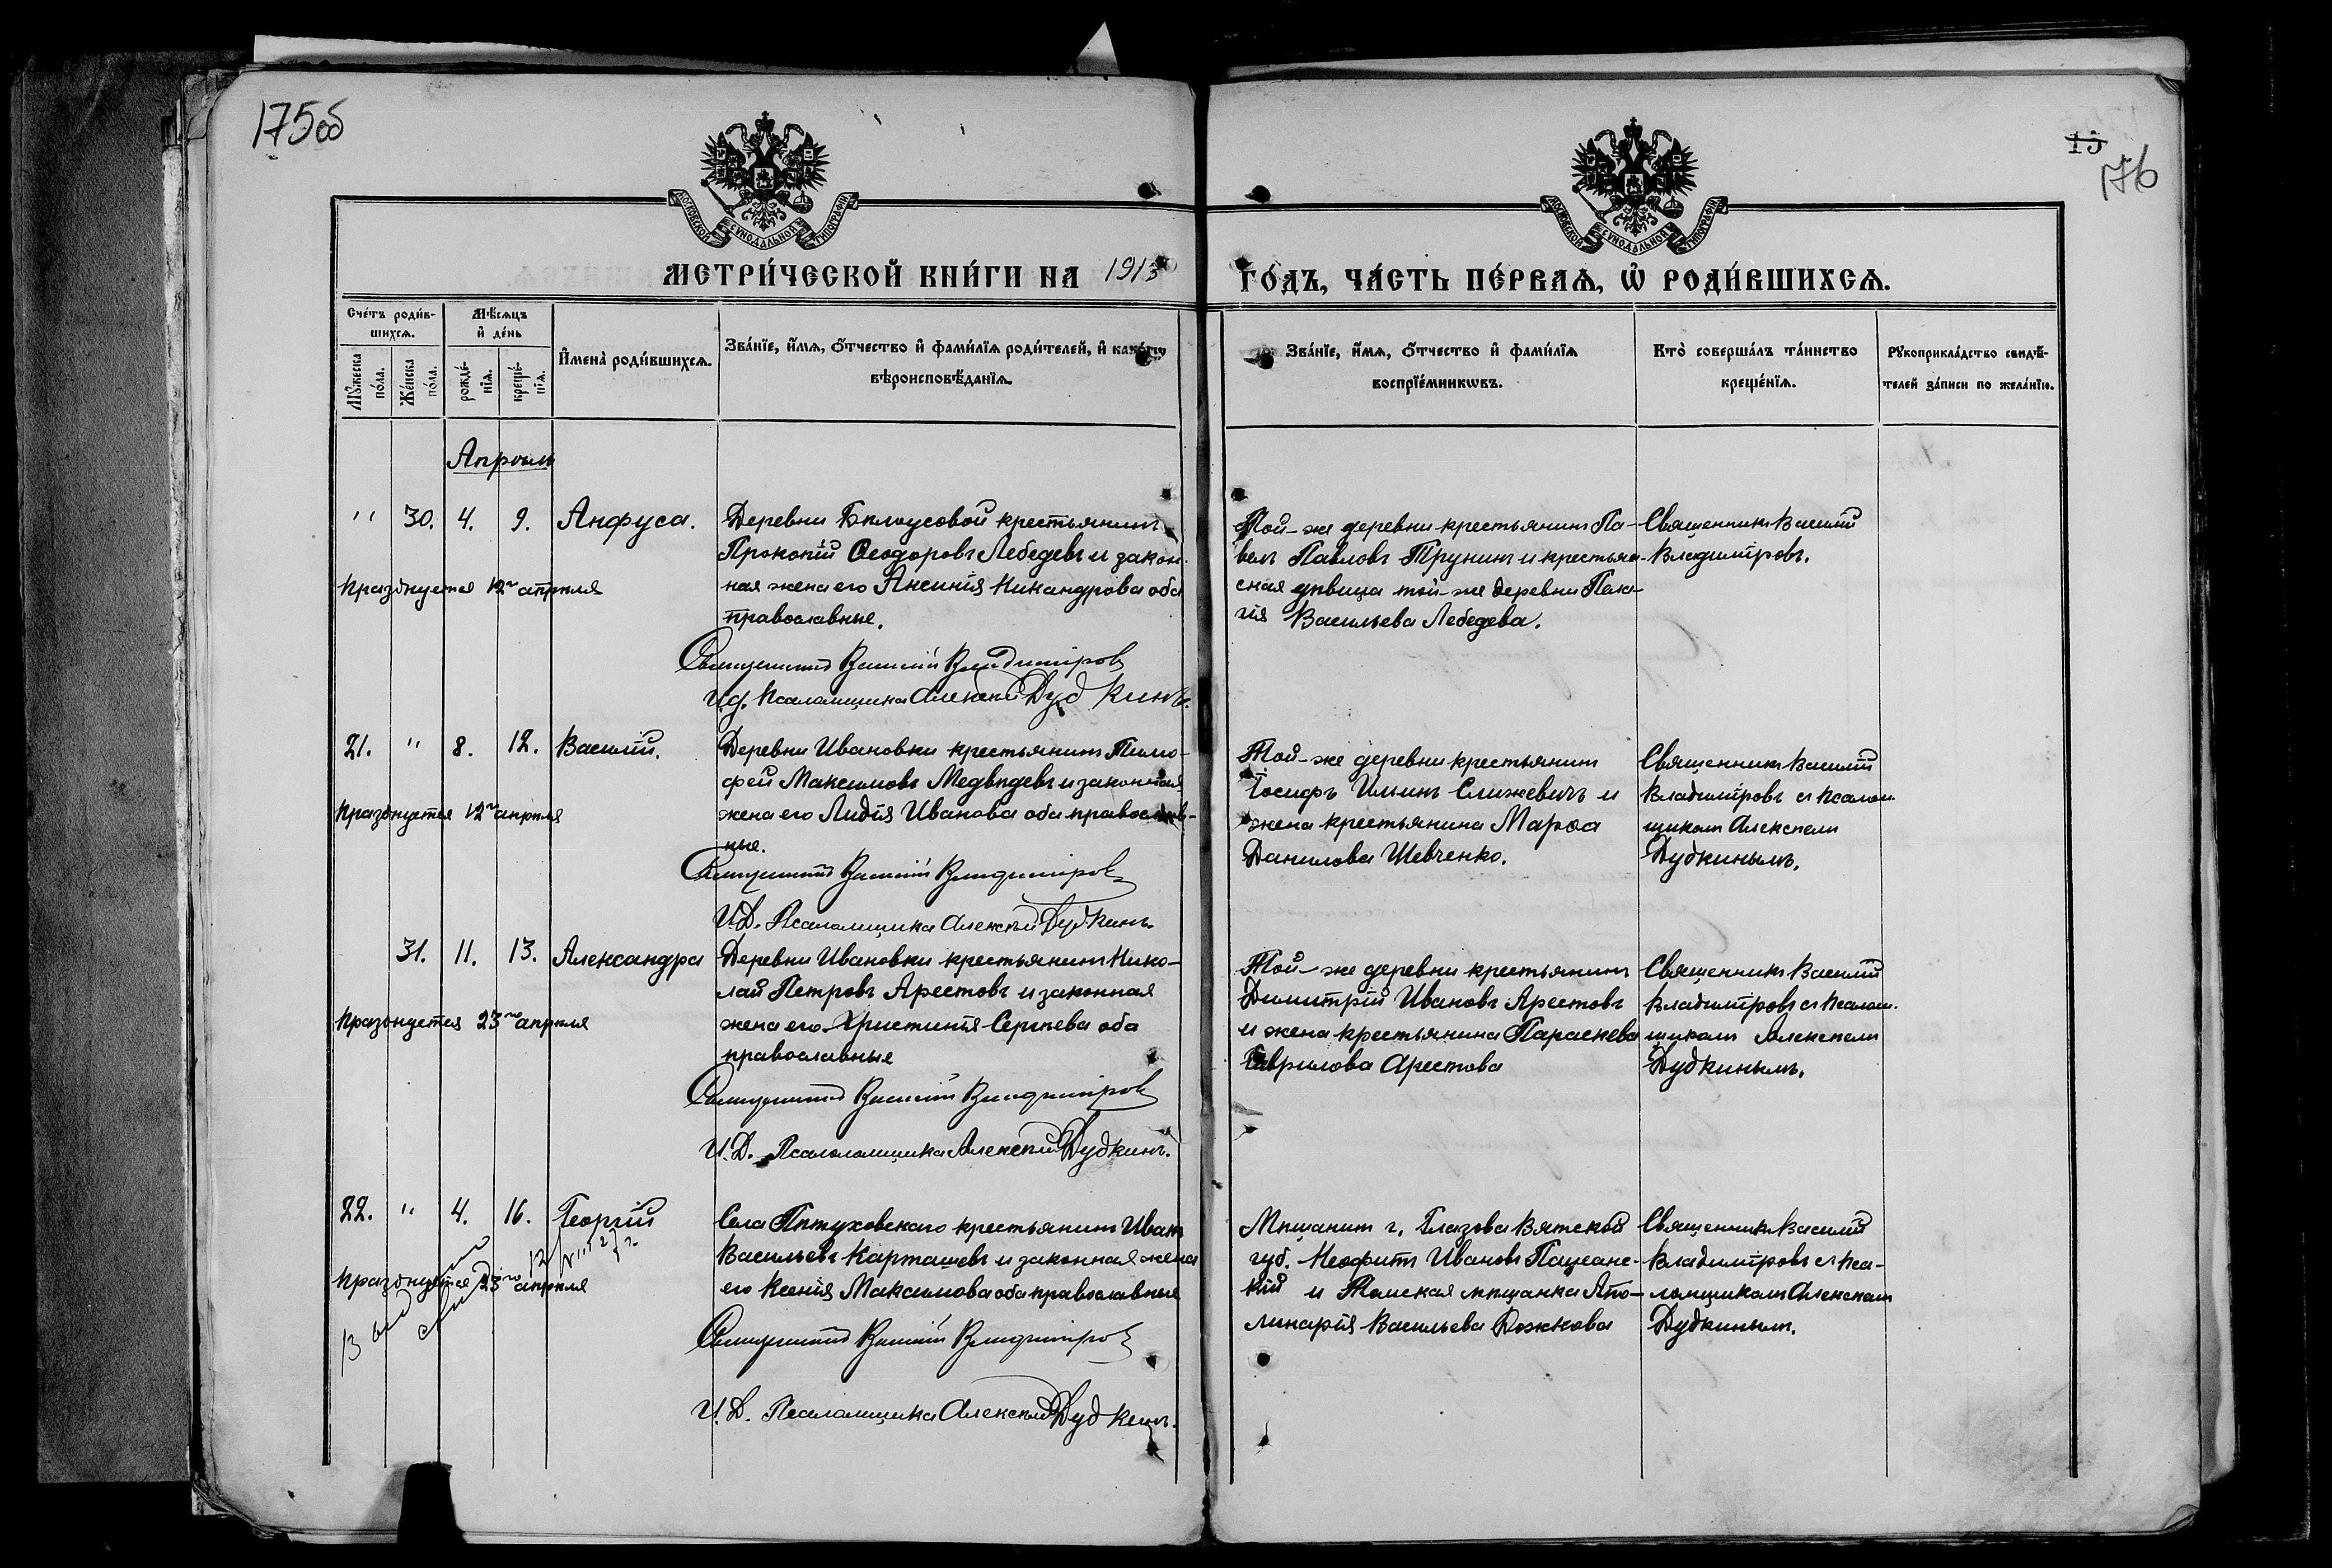 175об
15
176
МОСКОВСКОЙ СѴНОДАЛЬНОЙ ТИПОГРАФІИ
МОСКОВСКОЙ СѴНОДАЛЬНОЙ ТИПОГРАФІИ
МЕТРИ́ЧЕСКОЙ КНИ́ГИ НА 1913
ГО́ДЪ, ЧА́СТЬ ПЕ́РВАѦ, Ѡ҆ РОДИ́ВШИХСѦ.
Сче́тъ роди́в-
шихсѧ.
Мꙋ́жеска
по́ла.
Же́нска
по́ла.
Мѣ́сѧцъ
и҆ де́нь
рожде́-
нїѧ.
креще́-
нїѧ.
И҆мена̀ роди́вшихсѧ.
Зва́нїе, и҆́мѧ, ѻ҆́тчество и҆ фами́лїѧ роди́телей, и҆ како́гѡ
вѣроисповѣ́данїѧ.
Зва́нїе, и҆́мѧ, ѻ҆́тчество и҆ фами́лїѧ
воспрїе́мникѡвъ.
Кто̀ соверша́лъ та́инство
креще́нїѧ.
Рꙋкоприкла́дство свидѣ́-
телей за́писи по жела́нїю.
Апрѣль
" 30. 4. 9. Анфуса.
Деревни Бѣлоусовой крестьянинъ
Прокопій Ѳеодоровъ Лебедевъ и закон-
ная жена его Аксинія Никандрова оба
православные.
Празднуется 12го апрѣля
Священникъ Василій Владиміровъ
И.д. Псаломщика Алексѣй Дудкинъ.
Той-же деревни крестьянинъ Па-
велъ Павловъ Трунинъ и крестьян-
ская дѣвица той-же деревни Пела-
гія Васильева Лебедева.
Священникъ Василій
Владиміровъ.
21. " 8. 12. Василій.
Деревни Ивановки крестьянинъ Тимо-
фей Максимовъ Медвѣдевъ и законная
жена его Лидія Иванова оба православ-
ные.
Празднуется 12го апрѣля
Священникъ Василій Владиміровъ
И.Д. Псаломщика Алексѣй Дудкинъ.
Той-же деревни крестьянинъ
Іосифъ Ильинъ Слижевичъ и
жена крестьянина Марѳа
Данилова Шевченко.
Священникъ Василій
Владиміровъ съ псалом-
щикомъ Алексѣемъ
Дудкинымъ.
31. 11. 13. Александра
Деревни Ивановки крестьянинъ Нико-
лай Петровъ Арестовъ и законная
жена его Христинія Сергѣева оба
православные
Празднуется 23го апрѣля
Священникъ Василій Владиміровъ
И.Д. Псаломщика Алексѣй Дудкинъ.
Той-же деревни крестьянинъ
Димитрій Ивановъ Арестовъ
и жена крестьянина Параскева
Гаврилова Арестова
Священникъ Василій
Владиміровъ съ псалом-
щикомъ Алексѣемъ
Дудкинымъ.
22. " 4. 16. Георгій
Села Пѣтуховскаго крестьянинъ Иванъ
Васильевъ Карташевъ и законная жена
его Ксенія Максимова оба православные
Празднуется 23го апрѣля
Священникъ Василій Владиміровъ
И.Д. Псаломщика Алексѣй Дудкинъ.
Мѣщанинъ г. Глазова Вятской
губ. Неофитъ Ивановъ
и Томская мѣщанка Апо-
линарія Васильева Дожкова
Священникъ Василій
Владиміровъ съ пса-
ломщикомъ Алексѣемъ
Дудкинымъ.